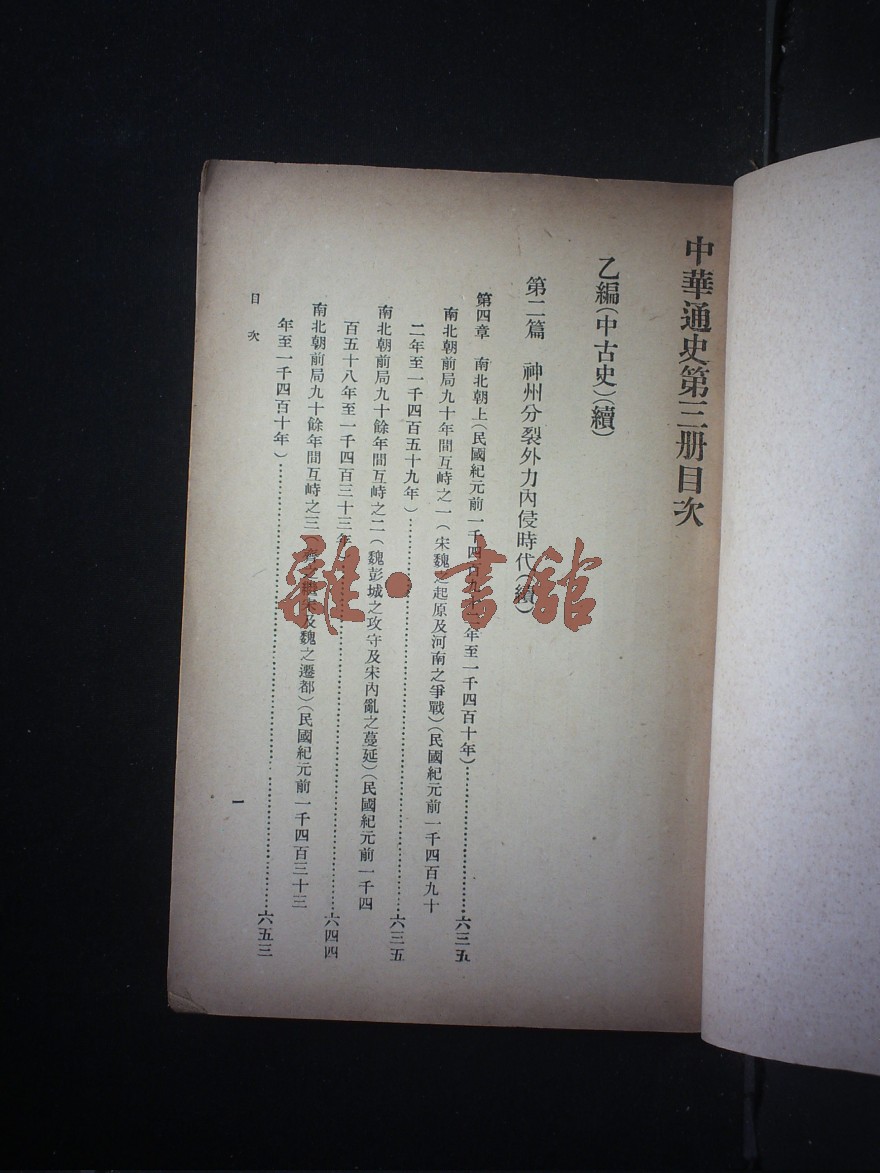 中華通史第三册目次
乙編(中古史)(續)
第二篇　神州分裂外力內侵時代(續)
第四章　南北朝上(民國紀元前一千四百九十二年至一千四百十年)……六三五
南北朝前局九十年間互峙之一(宋魏之起原及河南之爭戰)(民國紀元前一千四百九十
二年至一千四百五十九年)……六三五
南北朝前局九十餘年間互峙之二(魏彭城之攻守及宋內亂之蔓延)(民國紀元前一千四
百五十八年至一千四百三十三年)……六四四
南北朝前局九十餘年間互峙之三(齊之繼宋及魏之遷都)(民國紀元前一千四百三十三
年至一千四百十年)……六五三
目次
一
雜·書館